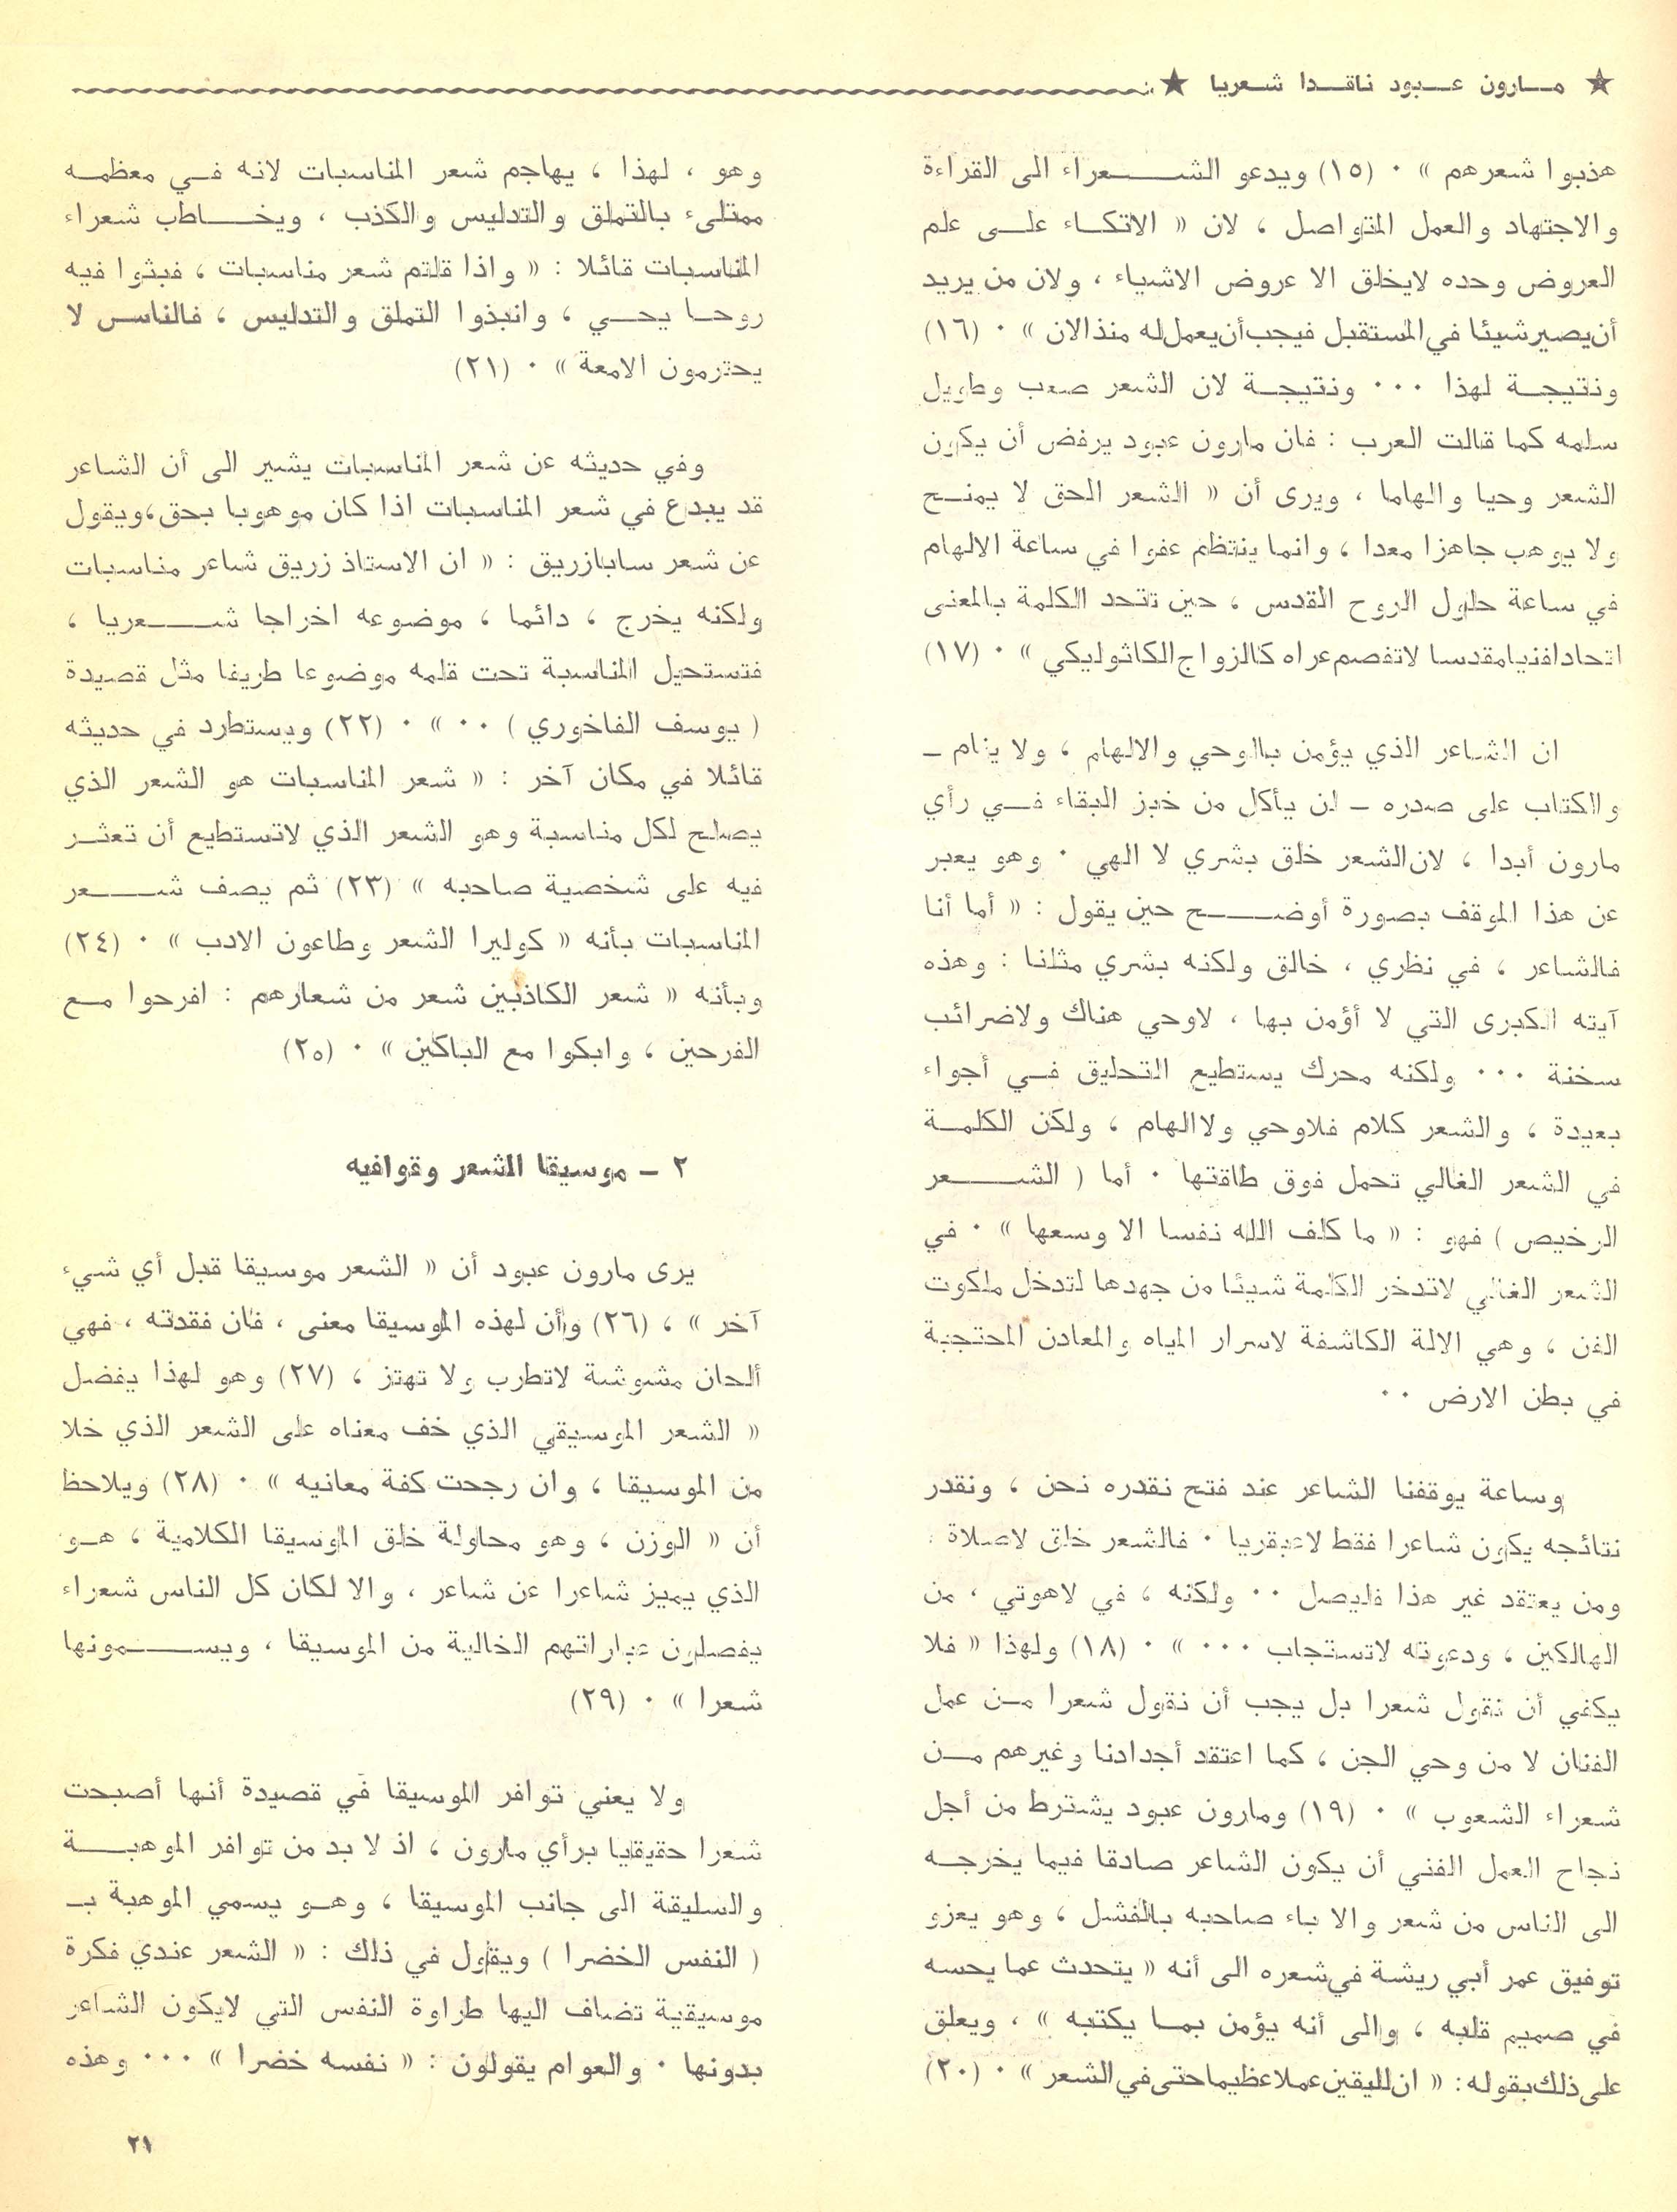 ★ مـــارون عـــبود ناقـــدا شـــعريا ★
هذبوا شعرهم » · (١٥) ويدعو الشــــعراء الى القراءة
والاجتهاد والعمل المتواصل ، لان « الاتكــاء علــى علم
العروض وحده لايخلق الا عروض الاشياء ، ولان من يريد
أن يصير شيئا في المستقبل فيجب أن يعمل له منذ الان » · (١٦)
ونتيجــة لهذا ··· ونتيجــة لان الشعر صعب وطويل
سلمه كما قالت العرب : فان مارون عبود يرفض أن يكون
الشعر وحيا والهاما ، ويرى أن « الشعر الحق لا يمنــح
ولا يوهب جاهزا معدا ، وانما ينتظم عفوا في ساعة الالهام
في ساعة حلول الروح القدس ، حين تتحد الكلمة بالمعنى
اتحادا فنيا مقدسا لاتفصم عراه كالزواج الكاثوليكي » · (١٧)
ان الشاعر الذي يؤمن بالوحي والالهام ، ولا ينام ــ
والكتاب على صدره ــ لن يأكل من خبز البقاء فــي رأي
مارون أبدا ، لان الشعر خلق بشري لا الهي · وهو يعبر
عن هذا الموقف بصورة أوضــــح حين يقول : « أما أنا
فالشاعر ، في نظري ، خالق ولكنه بشري مثلنا : وهذه
آيته الكبرى التي لا أؤمن بها ، لاوحي هناك ولاضرائب
سخنة ··· ولكنه محرك يستطيع التحليق فــي أجواء
بعيدة ، والشعر كلام فلاوحي ولاالهام ، ولكن الكلمــة
في الشعر الغالي تحمل فوق طاقتها · أما ( الشــــعر
الرخيص ) فهو : « ما كلف الله نفسا الا وسعها » · في
الشعر الغالي لاتدخر الكلمة شيئا من جهدها لتدخل ملكوت
الفن ، وهي الالة الكاشفة لاسرار المياه والمعادن المحتجبة
في بطن الارض ··
وساعة يوقفنا الشاعر عند فتح نقدره نحن ، ونقدر
نتائجه يكون شاعرا فقط لاعبقريا · فالشعر خلق لاصلاة :
ومن يعتقد غير هذا فليصل ·· ولكنه ، في لاهوتي ، من
الهالكين ، ودعوته لاتستجاب ··· » · (١٨) ولهذا « فلا
يكفي أن نقول شعرا بل يجب أن نقول شعرا مــن عمل
الفنان لا من وحي الجن ، كما اعتقد أجدادنا وغيرهم مــن
شعراء الشعوب » · (١٩) ومارون عبود يشترط من أجل
نجاح العمل الفني أن يكون الشاعر صادقا فيما يخرجــه
الى الناس من شعر والا باء صاحبه بالفشل ، وهو يعزو
توفيق عمر أبي ريشة في شعره الى أنه « يتحدث عما يحسه
في صميم قلبه ، والى أنه يؤمن بمــا يكتبه » ، ويعلق
على ذلك بقوله : « ان لليقين عملا عظيما حتى في الشعر » · (٢٠)
وهو ، لهذا ، يهاجم شعر المناسبات لانه فــي معظمــه
ممتلىء بالتملق والتدليس والكذب ، ويخــــاطب شعراء
المناسبات قائلا : « واذا قلتم شعر مناسبات ، فبثوا فيه
روحــا يحــي ، وانبذوا التملق والتدليس ، فالناس لا
يحترمون الامعة » · (٢١)
وفي حديثه عن شعر المناسبات يشير الى أن الشاعر
قد يبدع في شعر المناسبات اذا كان موهوبا بحق ، ويقول
عن شعر سابازريق : « ان الاستاذ زريق شاعر مناسبات
ولكنه يخرج ، دائما ، موضوعه اخراجا شــــعريا ،
فتستحيل المناسبة تحت قلمه موضوعا طريفا مثل قصيدة
( يوسف الفاخوري ) ·· » · (٢٢) ويستطرد في حديثه
قائلا في مكان آخر : « شعر المناسبات هو الشعر الذي
يصلح لكل مناسبة وهو الشعر الذي لاتستطيع أن تعثــر
فيه على شخصية صاحبه » (٢٣) ثم يصف شــــعر
المناسبات بأنه « كوليرا الشعر وطاعون الادب » · (٢٤)
وبأنه « شعر الكاذبين شعر من شعارهم : افرحوا مــع
الفرحين ، وابكوا مع الباكين » · (٢٥)
٢ ــ موسيقا الشعر وقوافيه
يرى مارون عبود أن « الشعر موسيقا قبل أي شيء
آخر » ، (٢٦) وأن لهذه الموسيقا معنى ، فان فقدته ، فهي
ألحان مشوشة لاتطرب ولا تهتز ، (٢٧) وهو لهذا يفضل
« الشعر الموسيقي الذي خف معناه على الشعر الذي خلا
من الموسيقا ، وان رجحت كفة معانيه » · (٢٨) ويلاحظ
أن « الوزن ، وهو محاولة خلق الموسيقا الكلامية ، هــو
الذي يميز شاعرا عن شاعر ، والا لكان كل الناس شعراء
يفصلون عباراتهم الخالية من الموسيقا ، ويســــمونها
شعرا » · (٢٩)
ولا يعني توافر الموسيقا في قصيدة أنها أصبحت
شعرا حقيقيا برأي مارون ، اذ لا بد من توافر الموهبــة
والسليقة الى جانب الموسيقا ، وهــو يسمي الموهبة بــ
( النفس الخضرا ) ويقول في ذلك : « الشعر عندي فكرة
موسيقية تضاف اليها طراوة النفس التي لايكون الشاعر
بدونها · والعوام يقولون : « نفسه خضرا » ··· وهذه
٢١